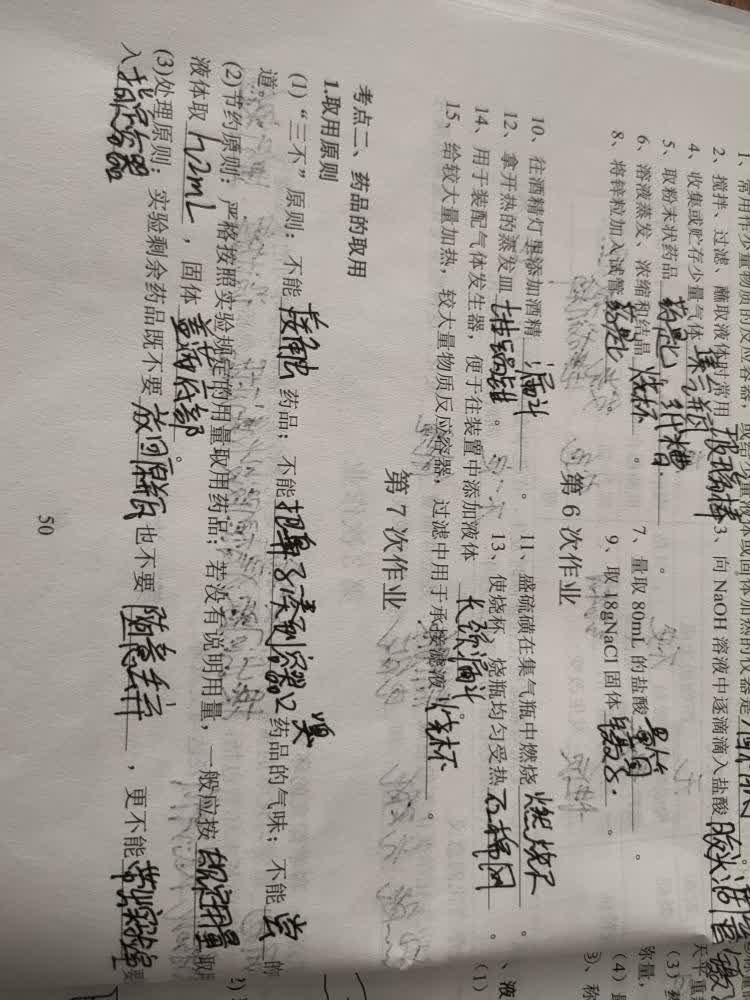 2、搅拌、过滤、蘸取液体时常用 玻璃棒 3、向 NaOH 溶液中逐滴滴入盐酸
4、收集或贮存少量气体 集气瓶 。
5、取粉末状药品 药匙 纸槽.
6、溶液蒸发、浓缩和结晶 烧杯 。 7、量取 80mL 的盐酸 量筒 。
8、将锌粒加入试管 药匙 。 9、取 18gNaCl 固体 。
第 6 次作业
10、往酒精灯里添加酒精 漏斗 。 11、盛硫磺在集气瓶中燃烧 燃烧 。
12、拿开热的蒸发皿 坩埚钳 。 13、使烧杯、烧瓶均匀受热 石棉网 。
14、用于装配气体发生器，便于往装置中添加液体 长颈漏斗
15、给较大量加热，较大量物质反应容器，过滤中用于承接滤液 烧杯 。
第 7 次作业
考点二、药品的取用
1.取用原则
(1)“三不”原则：不能 接触 药品；不能 把鼻子凑到容器口 闻 药品的气味；不能 尝 的
道。
(2)节约原则：严格按照实验规定的用量取用药品；若没有说明用量，一般应按 取
液体取 1~2mL ，固体 盖满底部 。
(3)处理原则：实验剩余药品既不要 放回原瓶 也不要 随意丢弃 ，更不能 带出实验室 要
入 指定容器
50